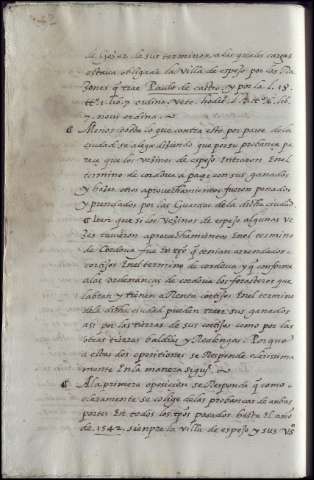 de Gozar de sus terminos, a las quales cargas
estava obligada la Villa de espejo por las Ra
zones q̄ trae Paulo de castro, y por la l. 18.
¶ Menos obsta lo que contra esto por parte de la
ciudad se alega diziendo que por su probança pa
reçe que los vezinos de espejo Entravan En el
termino de cordova a paçer con sus ganados
y hazer otros aprovechamientos fueron penados
y prendados por las Guardas de la dicha ciudad
¶ Iten que si los Vezinos de espejo algunas ve
zes tuvieron aprovechamientos En el termino
de Cordova fue En tpo q̄ tenian arrendados
cortijos En el termino de cordova y q̄ conforme
a las hordenanças de cordova los forasteros que
labran y tienen a Renta cortijos En el termino
de la dicha ciudad pueden traer sus ganados
asi por las tierras de sus cortijos como por las
otras tierras baldias y Realengas. Porque
a estas dos opositiones se Responde clarissima
mente En la manera siguiẽ.
¶ A la primera oposicion se Responde q̄ como
claramente se colige de las probanças de ambas
partes En todos los tpos pasados hasta el año
de 1542. sienpre la villa de espejo y sus Vºs